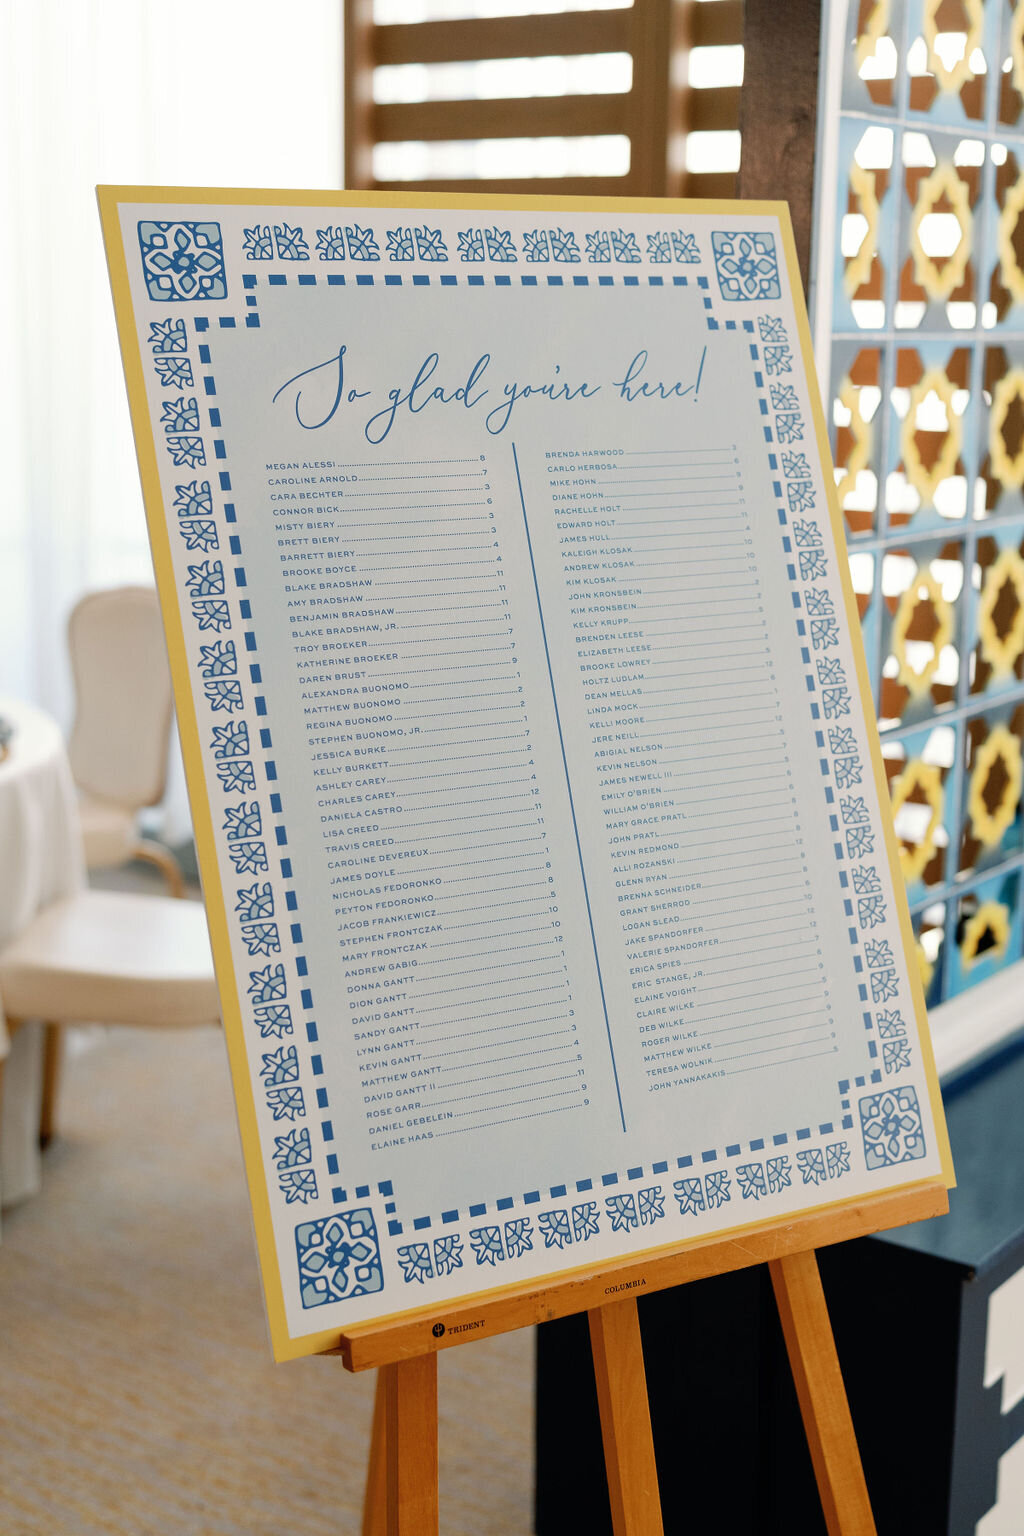 So glad you're here!
MEGAN ALESSI 8
CAROLINE ARNOLD 7
CARA BECHTER 3
CONNOR BICK 6
MISTY BIERY 3
BRETT BIERY 3
BARRETT BIERY 4
BROOKE BOYCE 4
BLAKE BRADSHAW 11
AMY BRADSHAW 11
BENJAMIN BRADSHAW 11
BLAKE BRADSHAW, JR. 11
TROY BROEKER 7
KATHERINE BROEKER 7
DAREN BRUST 9
ALEXANDRA BUONOMO 1
MATTHEW BUONOMO 2
REGINA BUONOMO 2
STEPHEN BUONOMO, JR. 1
JESSICA BURKE 7
KELLY BURKETT 2
ASHLEY CAREY 4
CHARLES CAREY 4
DANIELA CASTRO 12
LISA CREED 11
TRAVIS CREED 11
CAROLINE DEVEREUX 7
JAMES DOYLE 1
NICHOLAS FEDORONKO 8
PEYTON FEDORONKO 8
JACOB FRANKIEWICZ 5
STEPHEN FRONTCZAK 10
MARY FRONTCZAK 10
ANDREW GABIG 12
DONNA GANTT 1
DION GANTT 1
DAVID GANTT 1
SANDY GANTT 1
LYNN GANTT 3
KEVIN GANTT 3
MATTHEW GANTT 4
DAVID GANTT II 5
ROSE GARR 11
DANIEL GEBELEIN 9
ELAINE HAAS 9
BRENDA HARWOOD 3
CARLO HERBOSA 6
MIKE HOHN 9
DIANE HOHN 9
RACHELLE HOLT 11
EDWARD HOLT 11
JAMES HULL 4
KALEIGH KLOSAK 10
ANDREW KLOSAK 10
KIM KLOSAK 10
JOHN KRONSBEIN 2
KIM KRONSBEIN 2
KELLY KRUPP 5
BRENDEN LEESE 2
ELIZABETH LEESE 2
BROOKE LOWREY 5
HOLTZ LUDLAM 12
DEAN MELLAS 6
LINDA MOCK 1
KELLI MOORE 7
JERE NEILL 12
ABIGIAL NELSON 5
KEVIN NELSON 7
JAMES NEWELL III 5
EMILY O'BRIEN 6
WILLIAM O'BRIEN 6
MARY GRACE PRATL 8
JOHN PRATL 8
KEVIN REDMOND 8
ALLI ROZANSKI 12
GLENN RYAN 8
BRENNA SCHNEIDER
GRANT SHERROD 6
LOGAN SLEAD 10
JAKE SPANDORFER 12
VALERIE SPANDORFER 12
ERICA SPIES 7
ERIC STANGE, JR. 6
ELAINE VOIGHT 9
CLAIRE WILKE 5
DEB WILKE 9
ROGER WILKE 9
MATTHEW WILKE 9
TERESA WOLNIK 9
JOHN YANNAKAKIS 5
TRIDENT
COLUMBIA